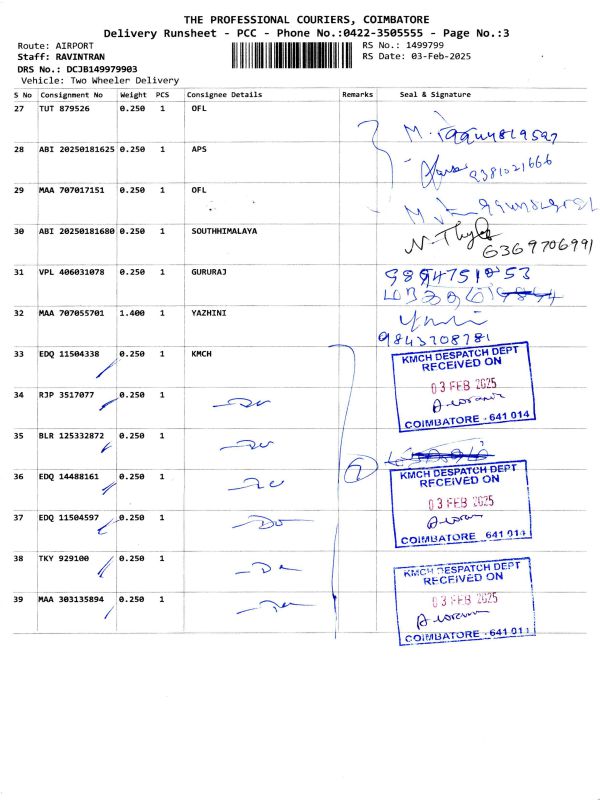 THE PROFESSIONAL COURIERS, COIMBATORE
Delivery Runsheet - PCC - Phone No.:0422-3505555 - Page No.:3
Route: AIRPORT RS No.: 1499799
Staff: RAVINTRAN RS Date: 03-Feb-2025
DRS No.: DCJB149979903
Vehicle: Two Wheeler Delivery
S No Consignment No Weight PCS Consignee Details Remarks Seal & Signature
27 TUT 879526 0.250 1 OFL
28 ABI 20250181625 0.250 1 APS
9381021666
29 MAA 707017151 0.250 1 OFL
30 ABI 20250181680 0.250 1 SOUTHHIMALAYA
6369706991
31 VPL 406031078 0.250 1 GURURAJ
32 MAA 707055701 1.400 1 YAZHINI
9843708781
33 EDQ 11504338 0.250 1 KMCH
KMCH DESPATCH DEPT
RECEIVED ON
03 FEB 2025
COIMBATORE - 641 014
34 RJP 3517077 0.250 1
35 BLR 125332872 0.250 1
36 EDQ 14488161 0.250 1
KMCH DESPATCH DEPT
RECEIVED ON
03 FEB 2025
COIMBATORE - 641 014
37 EDQ 11504597 0.250 1
38 TKY 929100 0.250 1
KMCH DESPATCH DEPT
RECEIVED ON
03 FEB 2025
COIMBATORE - 641 014
39 MAA 303135894 0.250 1